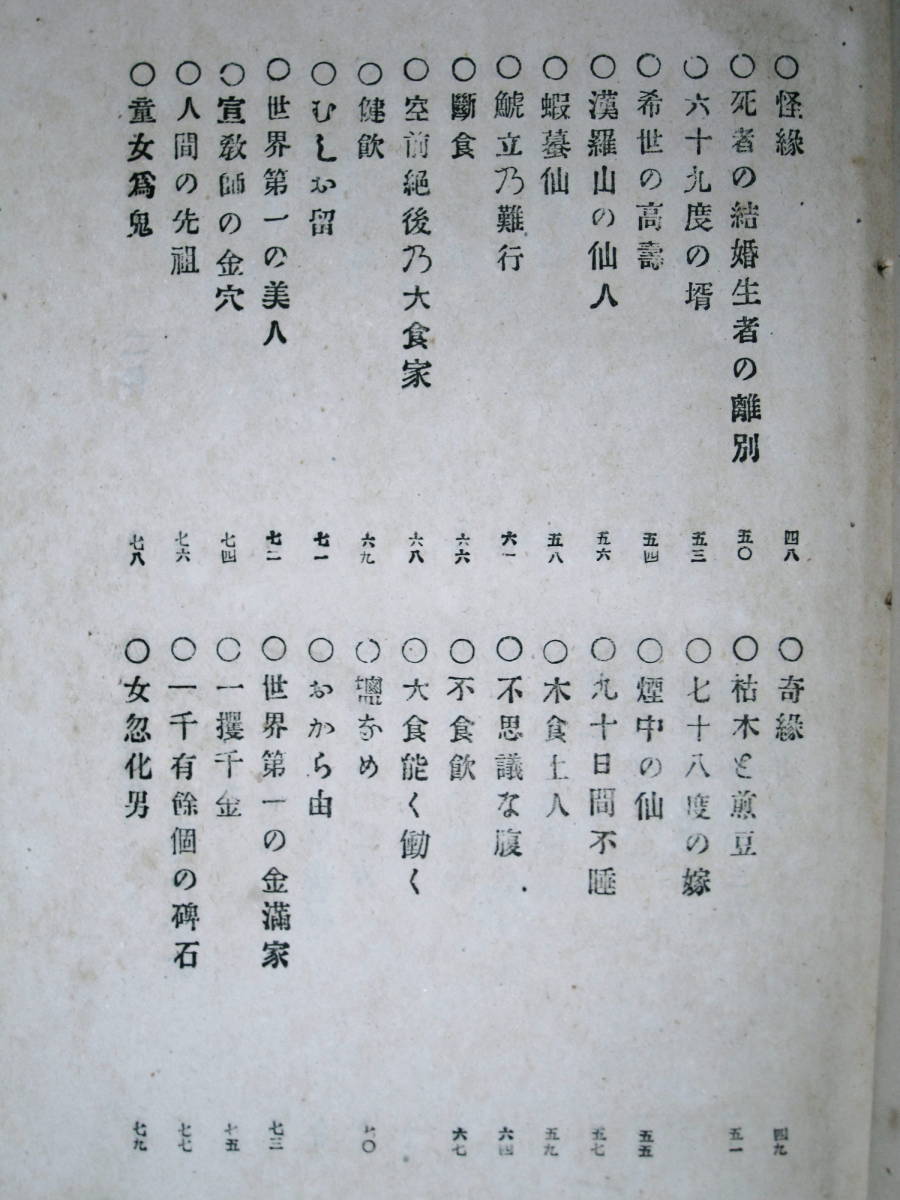 ○怪緣 四八
○死者の結婚生者の離別 五〇
○六十九度の壻 五三
○希世の高壽 五四
○漢羅山の仙人 五六
○蝦蟇仙 五八
○鯱立乃難行 六一
○斷食 六六
○空前絕後乃大食家 六八
○健飮 六九
○むしお留 七一
○世界第一の美人 七二
○宣敎師の金穴 七四
○人間の先祖 七六
○童女爲鬼 七八
○奇緣 四九
○枯木と煎豆 五一
○七十八度の嫁
○煙中の仙 五五
○九十日間不睡 五七
○木食上人 五九
○不思議な腹 六四
○不食飮 六七
○大食能く働く
○鹽なめ 七〇
○おから由
○世界第一の金滿家 七三
○一攫千金 七五
○一千有餘個の碑石 七七
○女忽化男 七九